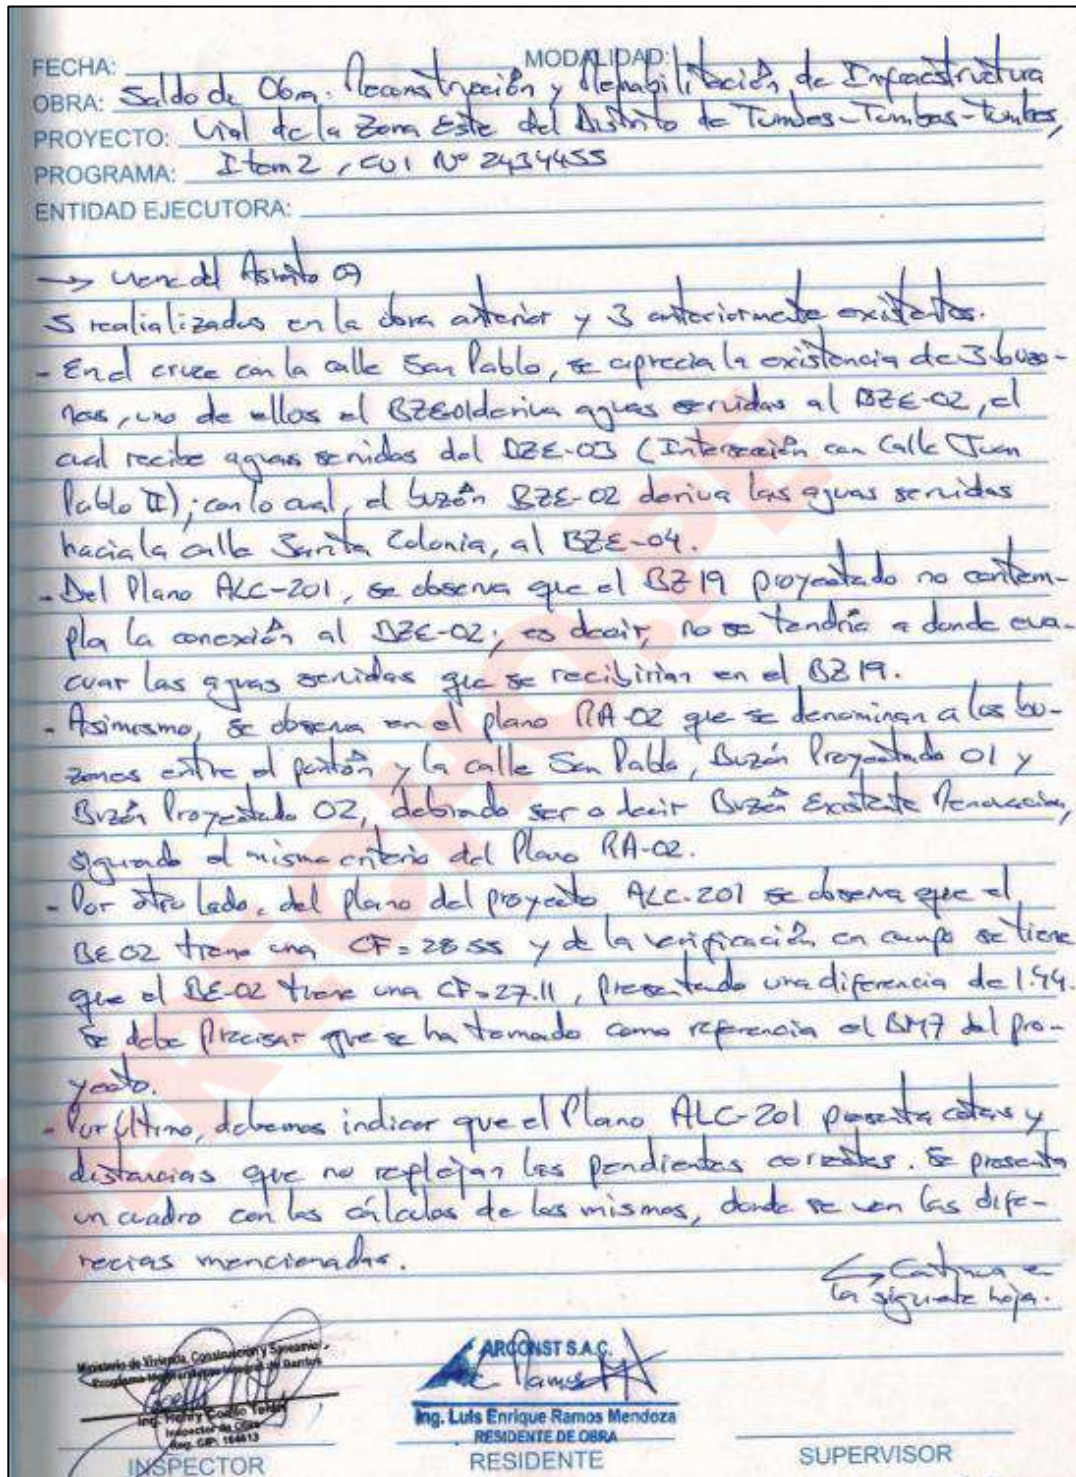 FECHA: MODALIDAD:
OBRA: Saldo de Obra: Reconstrucción y Rehabilitación de Infraestructura
PROYECTO: Vial de la Zona Este del Distrito de Tumbes-Tumbes-Tumbes,
PROGRAMA: Item 2, CUI Nº 2434455
ENTIDAD EJECUTORA:
→ viene del Asiento 09
5 realializados en la obra anterior y 3 anteriormente existentes.
- En el cruce con la calle San Pablo, se aprecia la existencia de 3 buzo-
nes, uno de ellos el BZE01 deriva aguas servidas al BZE-02, el
cual recibe aguas servidas del BZE-03 (Intersección con Calle Juan
Pablo II); con lo cual, el buzón BZE-02 deriva las aguas servidas
hacia la calle Sarita Colonia, al BZE-04.
- Del Plano ALC-201, se observa que el BZ19 proyectado no contem-
pla la conexión al BZE-02; es decir, no se tendría a donde eva-
cuar las aguas servidas que se recibirían en el BZ19.
- Asimismo, se observa en el plano RA-02 que se denominan a los bu-
zones entre el pontón y la calle San Pablo, Buzón Proyectado 01 y
Buzón Proyectado 02, debiendo ser o decir Buzón Existente Renovación,
siguiendo el mismo criterio del Plano RA-02.
- Por otro lado, del plano del proyecto ALC-201 se observa que el
BE02 tiene una CF=28.55 y de la verificación en campo se tiene
que el BE-02 tiene una CF=27.11, presentando una diferencia de 1.44.
Se debe precisar que se ha tomado como referencia el BM7 del pro-
yecto.
- Por último, debemos indicar que el Plano ALC-201 presenta cotas y
distancias que no reflejan las pendientes correctas. Se presenta
un cuadro con los cálculos de los mismos, donde se ven las dife-
recias mencionadas.
↪ Continua en
la siguiente hoja.
Ministerio de Vivienda, Construcción y Saneamiento
Programa Integral de Barrios
Ing. Henry
Inspector de Obra
Reg. CIP: 164613
INSPECTOR
ARCONST S.A.C.
Ing. Luis Enrique Ramos Mendoza
RESIDENTE DE OBRA
RESIDENTE
SUPERVISOR